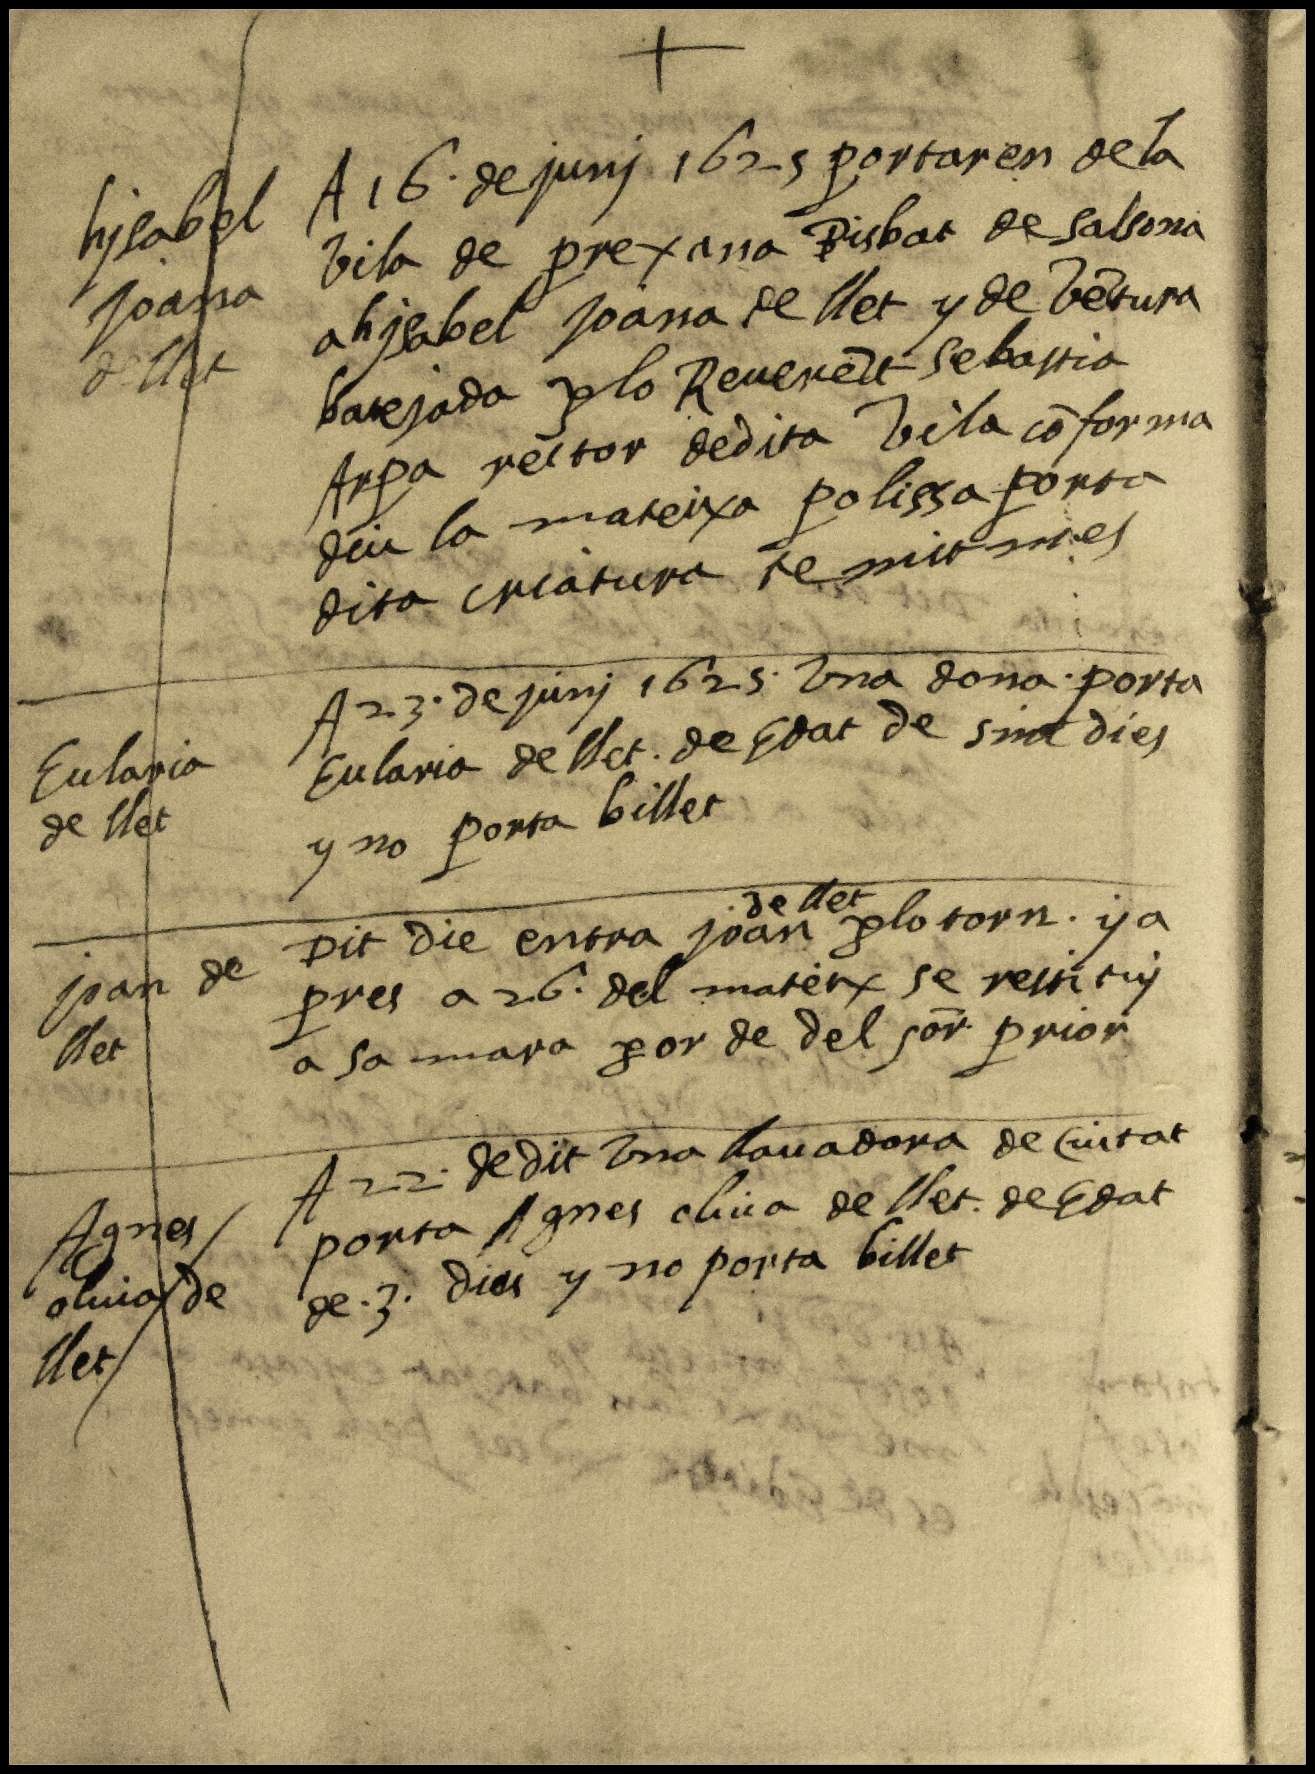 hjsabel
joana
de llet
A 16. de junj 1625 portaren de la
Vila de prexana Bisbat de salsona
a hjsabel joana de llet y de Vētura
batejada plo Reuerēt sebastia
Arpa rector de dita Vila cōforma
diu la mateixa polissa porta
dita criatura te mit mes
Eularia
de llet
A 23. de junj 1625. Vna dona. porta
Eularia de llet. de Edat de sinc dies
y no porta billet
joan de
llet
Dit die entra joan de llet plo torn. y a
pres a 26. del mateix se restituj
a sa mara por de del sōr prior
Agnes
oliua de
llet
A 22. de dit Vna llauadora de Ciutat
porta Agnes oliua de llet. de Edat
de .3. dias y no porta billet